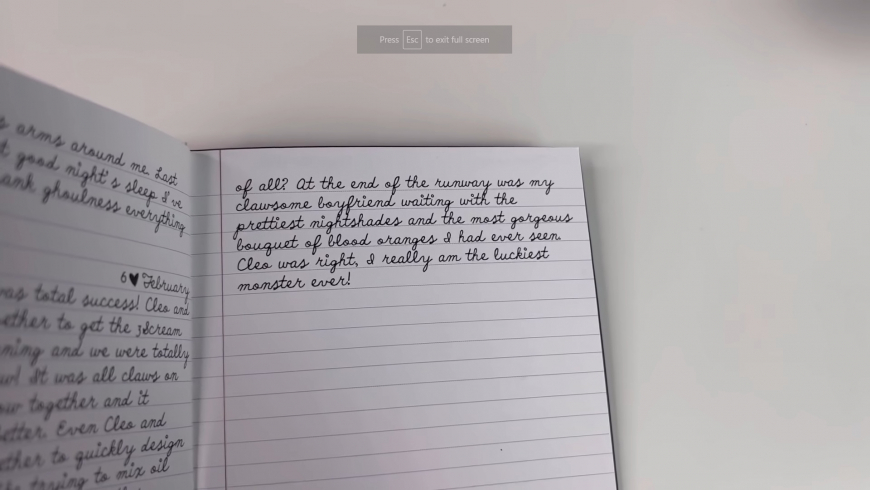 Press Esc to exit full screen
arms around me. Last
good night's sleep I've
ghoulness everything
6♥February
was total success! Cleo and
to get the Scream
and we were totally
It was all claws on
together and it
Even Cleo and
to quickly design
trying to mix oil
of all? At the end of the runway was my
clawsome boyfriend waiting with the
prettiest nightshades and the most gorgeous
bouquet of blood oranges I had ever seen.
Cleo was right, I really am the luckiest
monster ever!